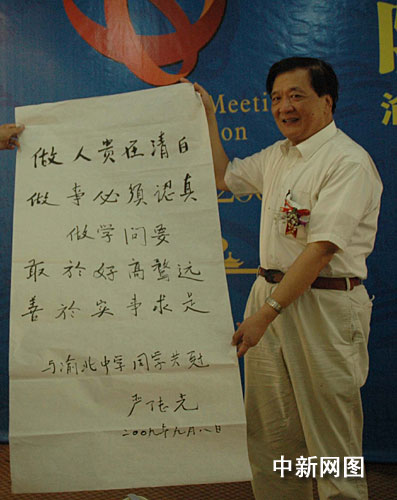 做人贵在清白
做事必须認真
做学问要
敢於好高骛远
善於实事求是
与渝北中学同学共勉
严陆光
二00九年九月八日
Meeting
中新网图